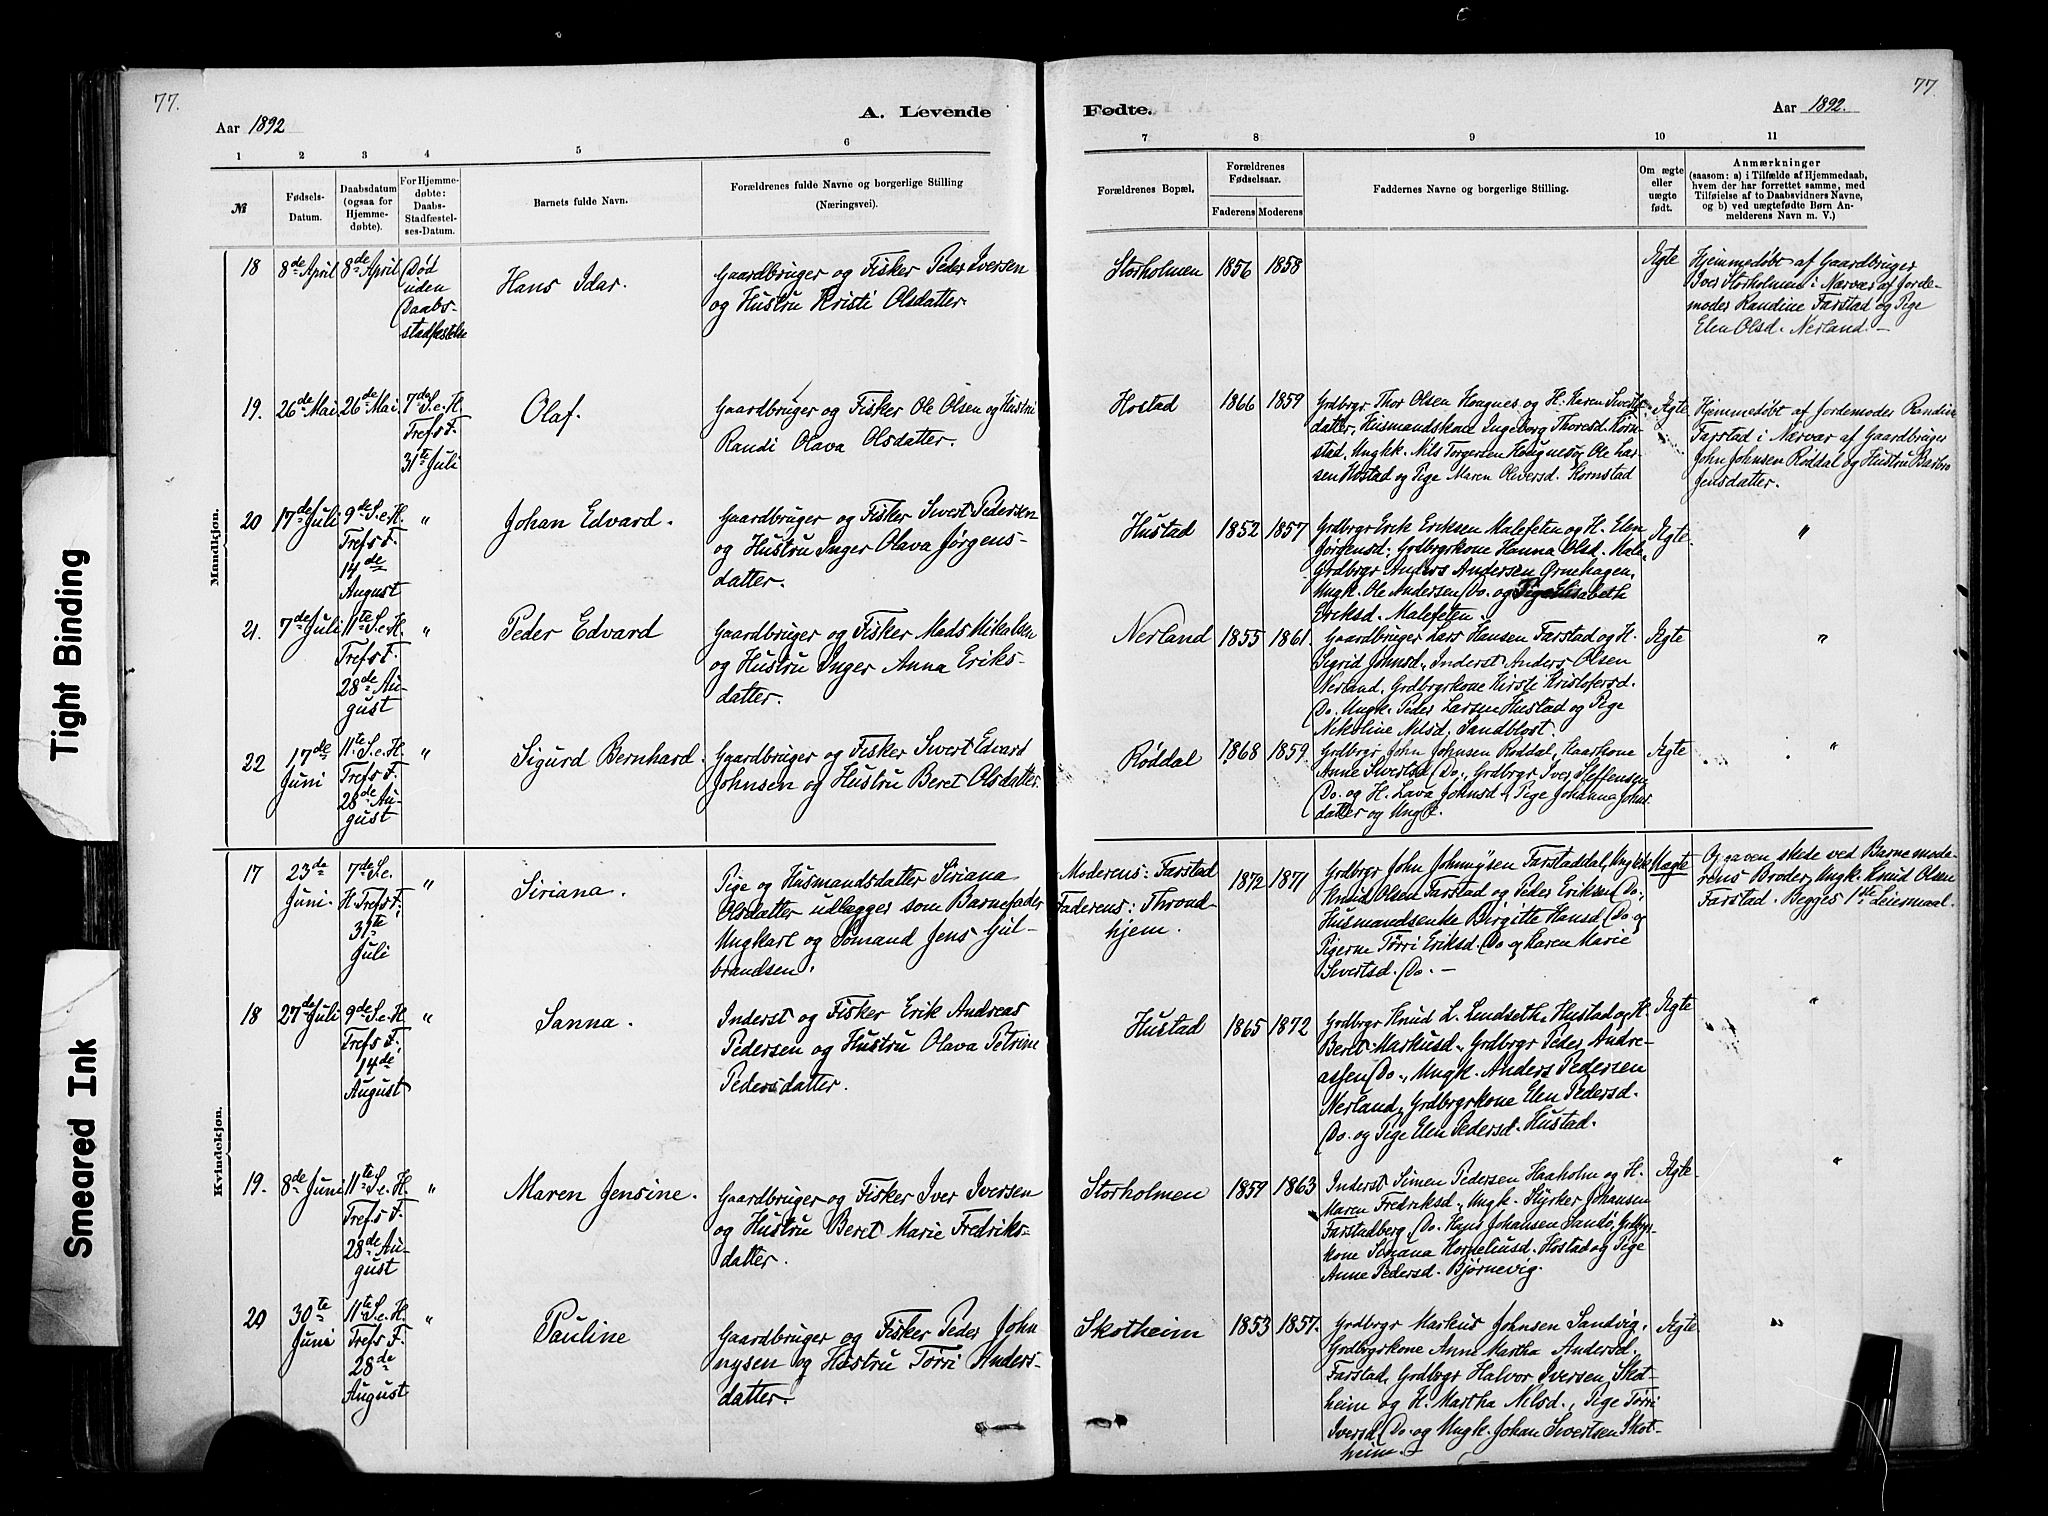 77.
77.
A. Levende
Fødte.
Aar 1892
Aar 1892.
1
2
3
4
5
6
7
8
9
10
11
№
Fødsels-
Datum.
Daabsdatum
(ogsaa for
Hjemme-
døbte).
For Hjemme-
døbte:
Daabs-
Stadfæstel-
ses-Datum.
Barnets fulde Navn.
Forældrenes fulde Navne og borgerlige Stilling
(Næringsvei).
Forældrenes Bopæl.
Forældrenes
Fødselsaar.
Faderens
Moderens
Faddernes Navne og borgerlige Stilling.
Om ægte
eller
uægte
født.
Anmærkninger
(saasom: a) i Tilfælde af Hjemmedaab,
hvem der har forrettet samme, med
Tilføielse af to Daabsvidners Navne,
og b) ved uægtefødte Børn An-
melderens Navn m. V.)
Mandkjøn.
18
8de April
8de April
Død
uden
Daabs-
stadfæstelse
Hans Idar.
Gaardbruger og Fisker Peder Iversen
og Hustru Kristi Olsdatter.
Storholmen
1856
1858
Ægte
Hjemmedøbt af Gaardbruger
Iver Storholmen i Nærvær af Jorde-
moder Randine Farstad og Pige
Elen Olsd. Nerland. —
19.
26de Mai
26de Mai
7de S. e. H.
Trefs F.
31te Juli
Olaf.
Gaardbruger og Fisker Ole Olsen og Hustru
Randi Olava Olsdatter.
Hostad
1866
1859
Grdbrgr Thor Olsen Hougnes og H. Karen Siverts-
datter, Husmandskone Ingeborg Thoresd. Korn-
stad, Ungk. Nils Torgersen Hougnes og Ole Lar-
sen Hostad og Pige Maren Oliversd. Kornstad
Ægte
Hjemmedøbt af Jordemoder Randine
Farstad i Nærvær af Gaardbruger
John Johnsen Røddal og Hustru Barbro
Jensdatter.
20
17de Juli
9de S. e. H.
Trefs F.
14de
August
"
Johan Edvard.
Gaardbruger og Fisker Sivert Pedersen
og Hustru Inger Olava Jørgens-
datter.
Hustad
1852
1857
Grdbrgr Erik Eriksen Malefeten og H. Elen
Jørgensd. Grdbrgrkone Hanna Olsd. Male
Grdbrgr Anders Andersen Ørnehagen,
Ungk. Ole Andersen Do. og Pige Elisabeth
Eriksd. Malefeten.
Ægte.
"
21.
7de Juli
11te S. e. H.
Trefs F.
28de Au-
gust
"
Peder Edvard
Gaardbruger og Fisker Mads Nikolsen
og Hustru Inger Anna Eriks-
datter.
Nerland
1855
1861.
Gaardbruger Lars Hansen Farstad og H.
Sigrid Johnsd., Inderst Anders Olsen
Nerland, Grdbrgrkone Kirsti Kristofersd.
Do. Ungk. Peder Larsen Hustad og Pige
Nikoline Nilsd. Sandblost.
Ægte
"
22
17de
Juni
11te S. e. H.
Trefs F.
28de Au-
gust
"
Sigurd Bernhard.
Gaardbruger og Fisker Sivert Edvard
Johnsen og Hustru Beret Olsdatter.
Røddal
1868
1859.
Grdbrgr John Johnsen Røddal, Kaarkone
Anne Sivertsd. Do., Grdbrgr Iver Steffensen
Do. og H. Lava Johnsd., Pige Johanna Johns-
datter og Ungk.
Ægte
"
Kvindekjøn.
17
23de
Juni.
7de S. e.
H. Trefs F.
31te
Juli
"
Siriana.
Pige og Husmandsdatter Siriana
Olsdatter udlægger som Barnefader
Ungkarl og Sømand Jens Gul-
brandsen.
Moderens: Farstad
Faderens: Thrond-
hjem.
1872
1871
Grdbrgr John Johnnysen Farstaddal, Ungkk.
Knud Olsen Farstad og Peder Eriksen Do.,
Husmandsenke Birgitte Hansd. Do. og
Pigerne Tørri Eriksd. Do. og Karen Marie
Sivertsd. Do. —
Uægte
Opgaven skede ved Barnemode-
rens Broder, Ungk. Knud Olsen
Farstad. Begges 1ste Leiermaal.
18
27de Juli
9de S. e. H.
Trefs F.
14de
August
"
Sanna.
Inderst og Fisker Erik Andreas
Pedersen og Hustru Olava Petrine
Pedersdatter.
Hustad
1865
1872
Grdbrgr Knud L. Lindseth, Hustad og H.
Beret Markusd., Grdbrgr Peder Andre-
assen Do., Ungk. Anders Pedersen
Nerland, Grdbrgrkone Elen Pedersd.
Do. og Pige Elen Pedersd. Hustad.
Ægte
"
19.
8de Juni
11te S. e. H.
Trefs F.
28de Au-
gust
"
Maren Jensine.
Gaardbruger og Fisker Iver Iversen
og Hustru Beret Marie Fredriks-
datter.
Storholmen
1859
1863
Inderst Simen Pedersen Haaholm og H.
Maren Fredriksd., Ungk. Styrker Johansen
Farstadberg, Do. Hans Johansen Sandø, Grdbrgr-
kone Siriana Korneliusd. Hostad og Pige
Anne Pedersd. Bjørnevig.
Ægte.
"
20
30te
Juni
11te S. e. H.
Trefs F.
28de
August
"
Pauline
Gaardbruger og Fisker Peder John
nysen og Hustru Tørri Anders-
datter.
Skotheim
1853
1857.
Grdbrgr Markus Johnsen Sandvig,
Grdbrgrkone Anne Martha Andersd.
Farstad, Grdbrgr Halvor Iversen Skot-
heim og H. Martha Nilsd., Pige Tørri
Iversd. Do. og Ungk. Johan Sivertsen Skot-
heim. —
Ægte.
"
Tight Binding
Smeared Ink